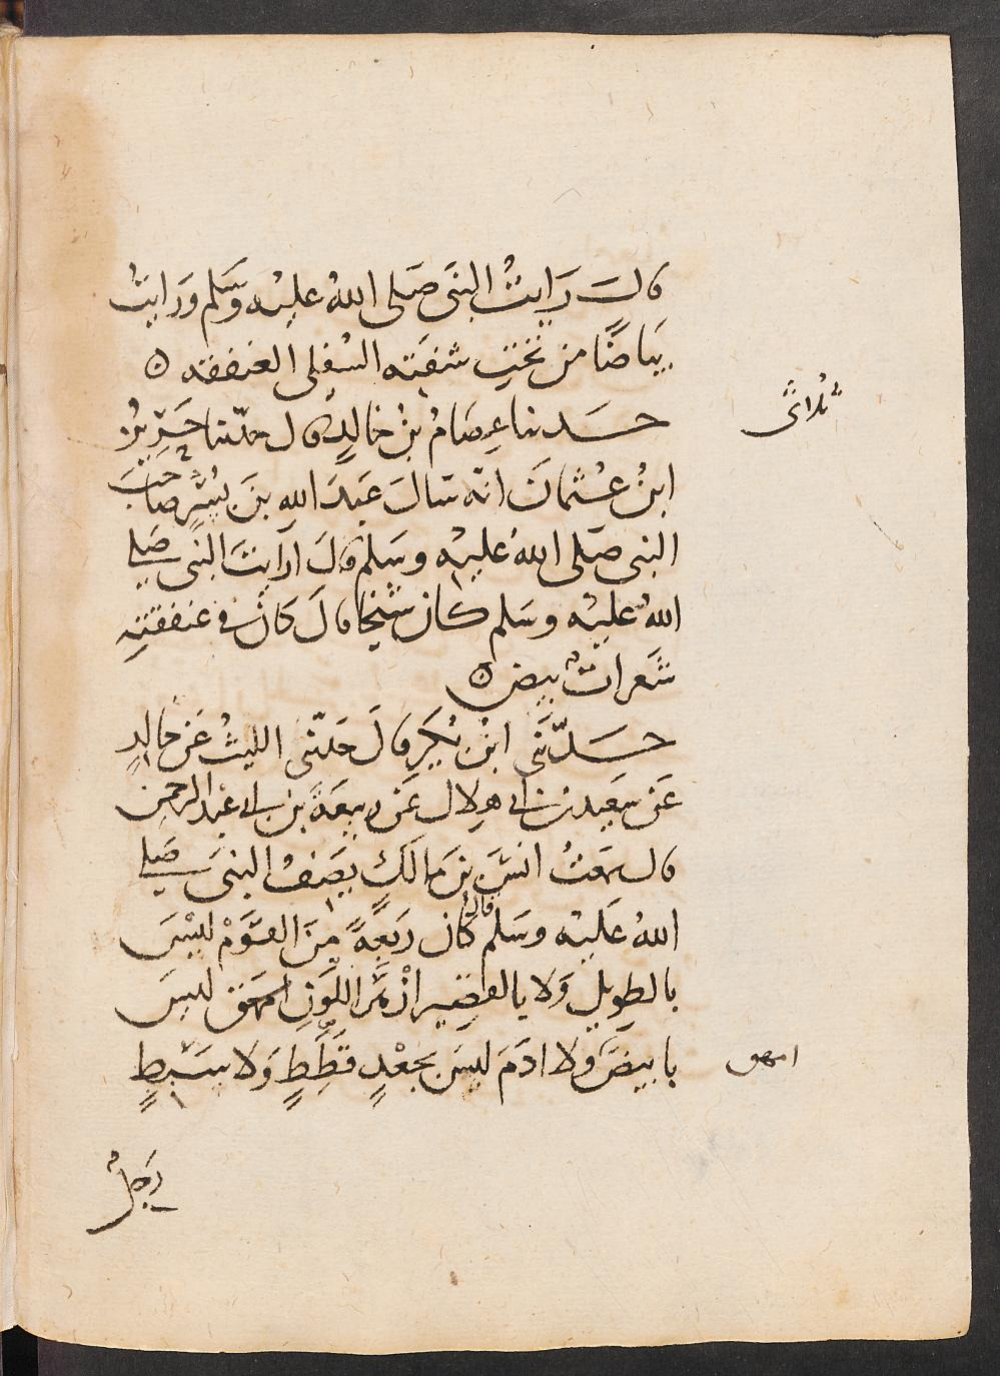 قال رَايتُ النبىَ صَلى اللهُ عليْه وَسَلم وَرَايتُ
بَيَاضًا من تحتِ شفَته السُفلى العنفقه ه
حسدثنا عِصَامُ بنُ خالدٍ قال حدّثنا حَرِيزُ بنُ
ثُلاثىٌ
ابنُ عُثمانَ انه سَالَ عَبدَ اللهِ بنَ بُسْرٍ صَاحبَ
النبى صَلى اللهُ عليْه وسَلم قالَ ارَايتَ النبى صَلى
اللهُ عليْه وسَلم كان شيخًا قالَ كانَ فى عنفقتِه
شَعراتٌ بيض ه
حسدّثنى ابنُ بُكَيرٍ قالَ حَدّثنى الليثُ عَن خالدٍ
عَن سَعِيد بن ابى هِلال عَن رَبيعَةَ بن ابى عَبد الرحمن
قال سَمعتُ انسَ بنَ مَالكٍ يَصِفُ النبىَ صَلى
اللهُ عَليْه وسَلم قال كان رَبعةً مِنَ القَوْم ليْسَ
بالطوِيلِ وَلا بالقصِير ازْهَرَ اللوْنِ امهَقَ ليسَ
بابيضَ وَلا ادَمَ ليسَ بجَعْدٍ قَطِطٍ وَلا سَبِطٍ
امهق
رَجلٌ